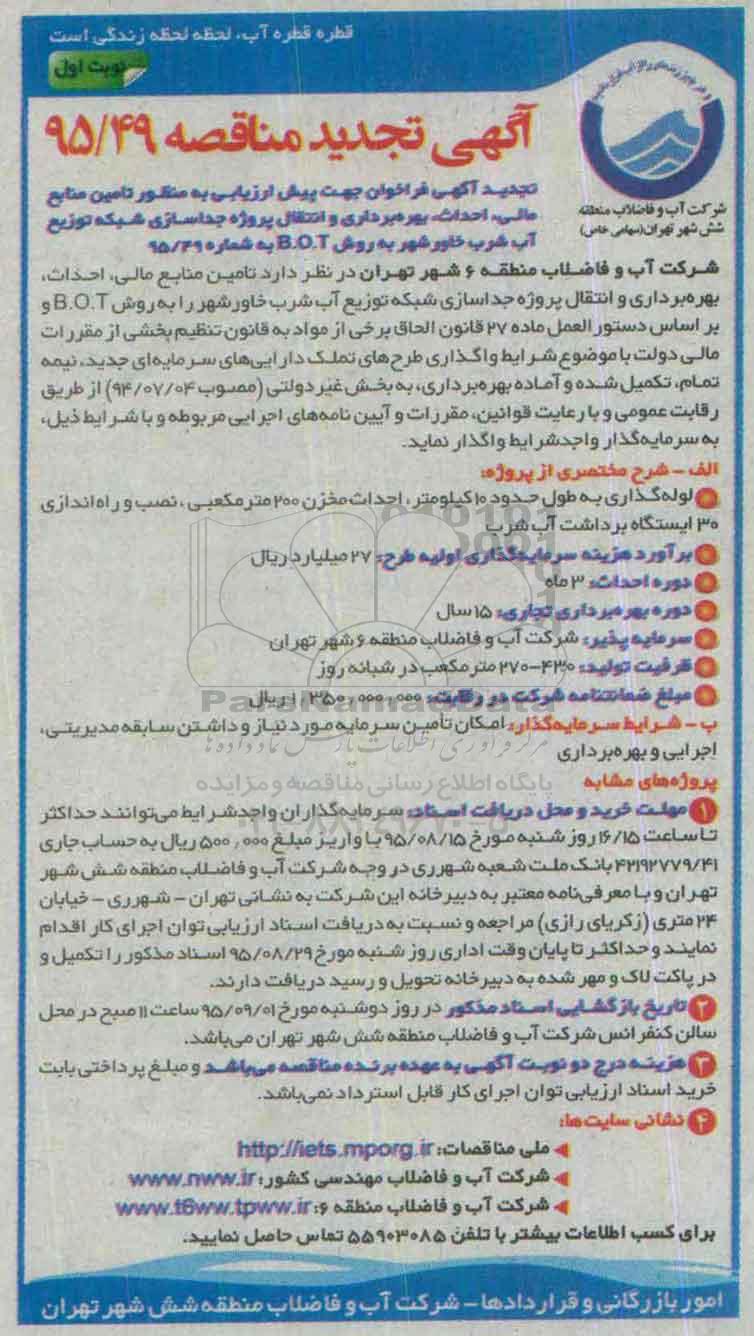 قطره قطره آب، لحظه لحظه زندگی است
نوبت اول
شرکت آب و فاضلاب منطقه
شش شهر تهران (سهامی خاص)
آگهی تجدید مناقصه ۹۵/۴۹
تجدید آگهی فراخوان جهت پیش ارزیابی به منظور تامین منابع
مالی، احداث، بهره‌برداری و انتقال پروژه جداسازی شبکه توزیع
آب شرب خاورشهر به روش B.O.T به شماره ۹۵/۴۹
شرکت آب و فاضلاب منطقه ۶ شهر تهران در نظر دارد تامین منابع مالی، احداث،
بهره‌برداری و انتقال پروژه جداسازی شبکه توزیع آب شرب خاورشهر را به روش B.O.T و
بر اساس دستور العمل ماده ۲۷ قانون الحاق برخی از مواد به قانون تنظیم بخشی از مقررات
مالی دولت با موضوع شرایط واگذاری طرح‌های تملک دارایی‌های سرمایه‌ای جدید، نیمه
تمام، تکمیل شده و آماده بهره‌برداری، به بخش غیر دولتی (مصوب ۹۴/۰۷/۰۴) از طریق
رقابت عمومی و با رعایت قوانین، مقررات و آیین نامه‌های اجرایی مربوطه و با شرایط ذیل،
به سرمایه‌گذار واجدشرایط واگذار نماید.
الف - شرح مختصری از پروژه:
لوله‌گذاری به طول حدود ۱۰ کیلومتر، احداث مخزن ۲۰۰ مترمکعبی، نصب و راه‌اندازی
۳۰ ایستگاه برداشت آب شرب
برآورد هزینه سرمایه‌گذاری اولیه طرح: ۲۷ میلیارد ریال
دوره احداث: ۳ ماه
دوره بهره‌برداری تجاری: ۱۵ سال
سرمایه پذیر: شرکت آب و فاضلاب منطقه ۶ شهر تهران
ظرفیت تولید: ۴۳۰-۲۷۰ مترمکعب در شبانه روز
مبلغ ضمانتنامه شرکت در رقابت: ۱,۳۵۰,۰۰۰,۰۰۰ ریال
ParsNamadData
ب - شرایط سرمایه‌گذار: امکان تأمین سرمایه مورد نیاز و داشتن سابقه مدیریتی،
اجرایی و بهره‌برداری
مرکز فرآوری اطلاعات پارس نماد داده‌ها
پروژه‌های مشابه
پایگاه اطلاع رسانی مناقصه و مزایده
۱ مهلت خرید و محل دریافت اسناد: سرمایه‌گذاران واجدشرایط می‌توانند حداکثر
تا ساعت ۱۶/۱۵ روز شنبه مورخ ۹۵/۰۸/۱۵ با واریز مبلغ ۵۰۰,۰۰۰ ریال به حساب جاری
۴۲۱۹۲۷۷۹/۴۱ بانک ملت شعبه شهرری در وجه شرکت آب و فاضلاب منطقه شش شهر
تهران و با معرفی‌نامه معتبر به دبیرخانه این شرکت به نشانی تهران - شهرری - خیابان
۲۴ متری (زکریای رازی) مراجعه و نسبت به دریافت اسناد ارزیابی توان اجرای کار اقدام
نمایند و حداکثر تا پایان وقت اداری روز شنبه مورخ ۹۵/۰۸/۲۹ اسناد مذکور را تکمیل و
در پاکت لاک و مهر شده به دبیرخانه تحویل و رسید دریافت دارند.
۲ تاریخ بازگشایی اسناد مذکور در روز دوشنبه مورخ ۹۵/۰۹/۰۱ ساعت ۱۱ صبح در محل
سالن کنفرانس شرکت آب و فاضلاب منطقه شش شهر تهران می‌باشد.
۳ هزینه درج دو نوبت آگهی به عهده برنده مناقصه می‌باشد و مبلغ پرداختی بابت
خرید اسناد ارزیابی توان اجرای کار قابل استرداد نمی‌باشد.
۴ نشانی سایت‌ها:
ملی مناقصات: http://iets.mporg.ir
شرکت آب و فاضلاب مهندسی کشور: www.nww.ir
شرکت آب و فاضلاب منطقه ۶: www.t6ww.tpww.ir
برای کسب اطلاعات بیشتر با تلفن ۵۵۹۰۳۰۸۵ تماس حاصل نمایید.
امور بازرگانی و قراردادها - شرکت آب و فاضلاب منطقه شش شهر تهران